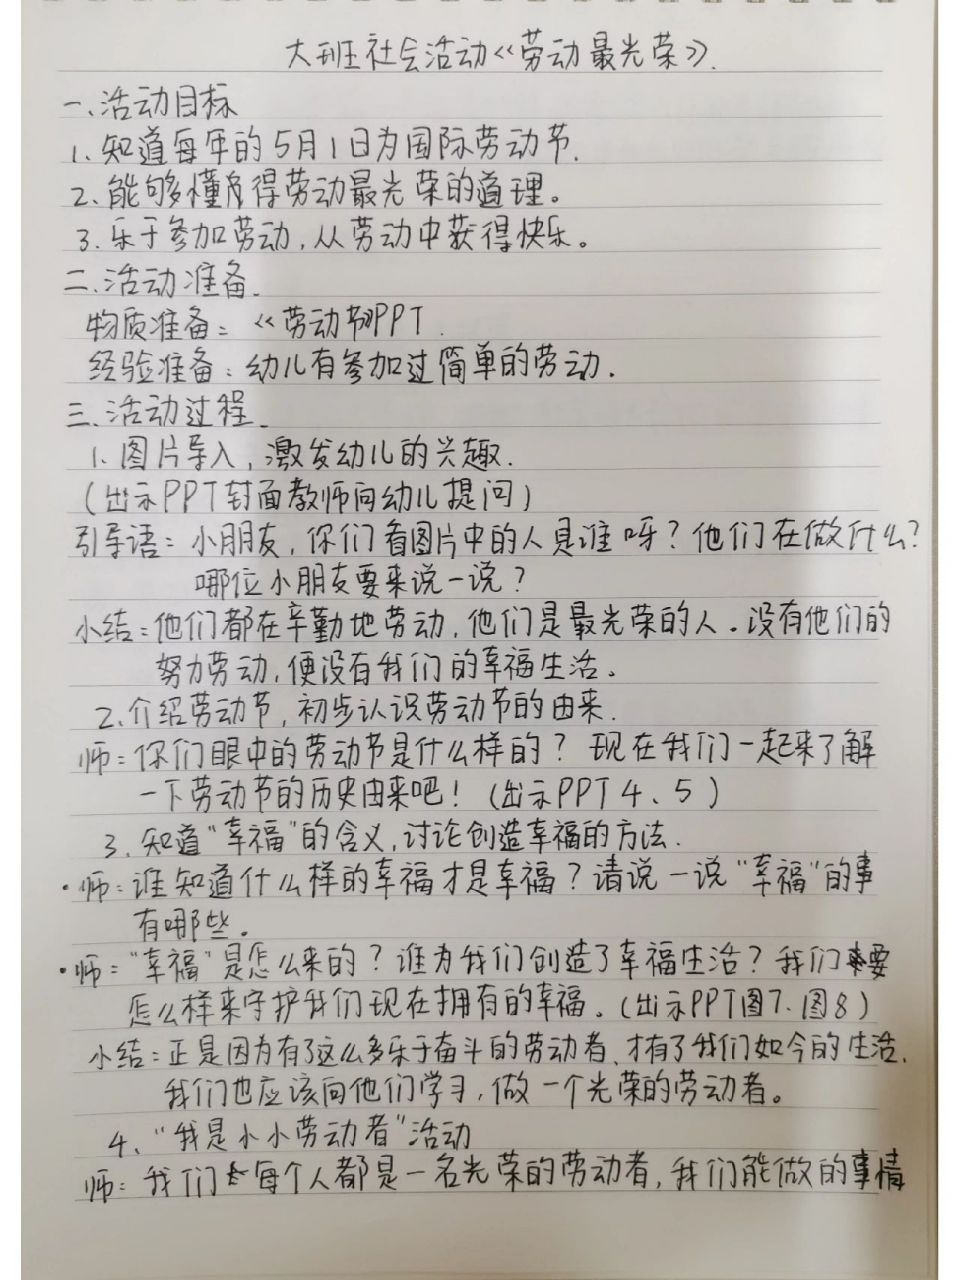 大班社会活动《劳动最光荣》.
一、活动目标
1、知道每年的5月1日为国际劳动节.
2、能够懂得劳动最光荣的道理。
3、乐于参加劳动,从劳动中获得快乐。
二、活动准备.
物质准备:《劳动节》PPT.
经验准备:幼儿有参加过简单的劳动.
三、活动过程.
1、图片导入,激发幼儿的兴趣.
(出示PPT封面教师向幼儿提问)
引导语:小朋友,你们看图片中的人是谁呀?他们在做什么?
哪位小朋友要来说一说?
小结:他们都在辛勤地劳动,他们是最光荣的人。没有他们的
努力劳动,便没有我们的幸福生活。
2、介绍劳动节,初步认识劳动节的由来.
师:你们眼中的劳动节是什么样的?现在我们一起来了解
一下劳动节的历史由来吧!(出示PPT4、5)
3、知道"幸福"的含义,讨论创造幸福的方法.
·师:谁知道什么样的幸福才是幸福?请说一说"幸福"的事
有哪些。
·师:"幸福"是怎么来的?谁为我们创造了幸福生活?我们要
怎么样来守护我们现在拥有的幸福。(出示PPT图7、图8)
小结:正是因为有了这么多乐于奋斗的劳动者、才有了我们如今的生活.
我们也应该向他们学习,做一个光荣的劳动者。
4、"我是小小劳动者"活动
师:我们每个人都是一名光荣的劳动者,我们能做的事情